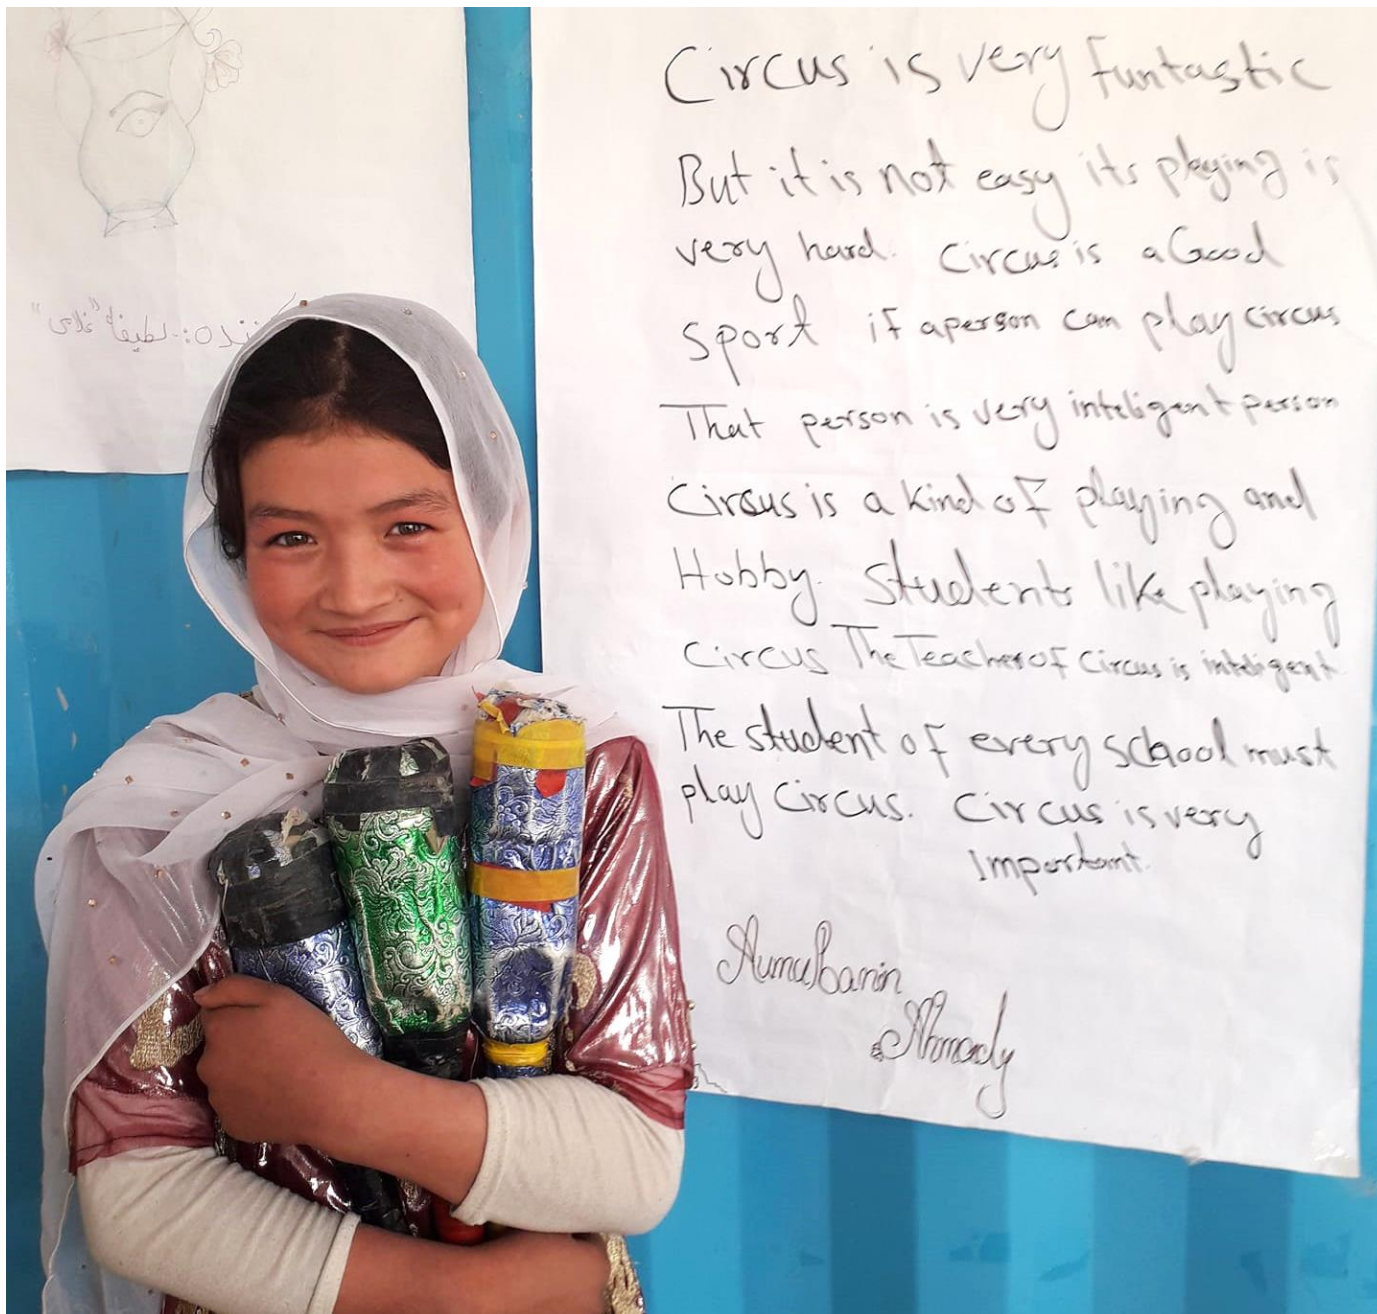 کننده: لطیفه "غلامی"
Circus is very Funtastic
But it is not easy its playing is
very hard. Circus is a Good
sport if a person can play circus
That person is very inteligent person
Circus is a kind of playing and
Hobby. Students like playing
circus The Teacher of Circus is inteligent
The student of every school must
play circus. Circus is very
Important.
Aumulbanin
Ahmady